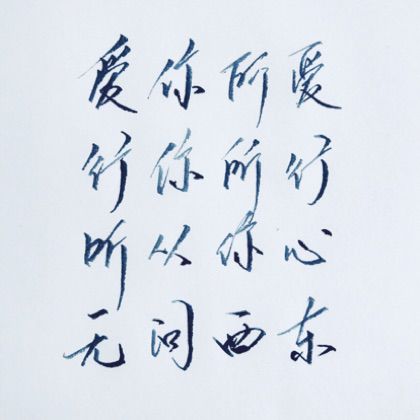 爱你所爱
行你所行
听从你心
无问西东